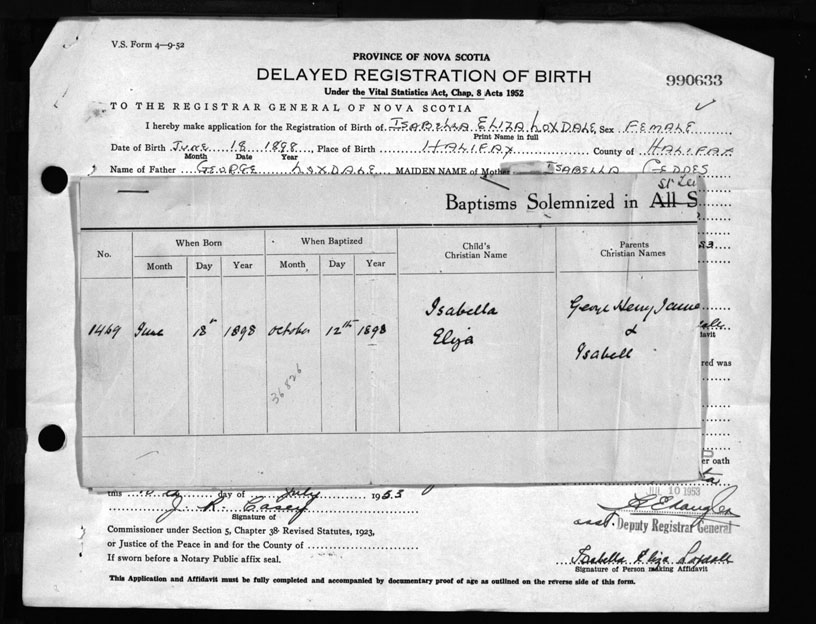 V.S. Form 4—9-52
PROVINCE OF NOVA SCOTIA
DELAYED REGISTRATION OF BIRTH
990633
Under the Vital Statistics Act, Chap. 8 Acts 1952
TO THE REGISTRAR GENERAL OF NOVA SCOTIA
I hereby make application for the Registration of Birth of ISABELLA ELIZA LOXDALE, Sex FEMALE
Print Name in full
Date of Birth JUNE 18 1898, Place of Birth HALIFAX County of HALIFAX
Month Date Year
Name of Father GEORGE LOXDALE MAIDEN NAME of Mother ISABELLA GEDDES
Baptisms Solemnized in All S
When Born When Baptized Child's Christian Name Parents Christian Names
No. Month Day Year Month Day Year
1469 June 18th 1898 October 12th 1898 Isabella Eliza George Henry James & Isabell
36826
davit
red was
er oath
this day of July 1953
JUL 10 1953
J. R. Casey
Signature of
asst. Deputy Registrar General
Commissioner under Section 5, Chapter 38 Revised Statutes, 1923,
or Justice of the Peace in and for the County of
If sworn before a Notary Public affix seal.
Isabella Eliza Loxdale
Signature of Person making Affidavit
This Application and Affidavit must be fully completed and accompanied by documentary proof of age as outlined on the reverse side of this form.